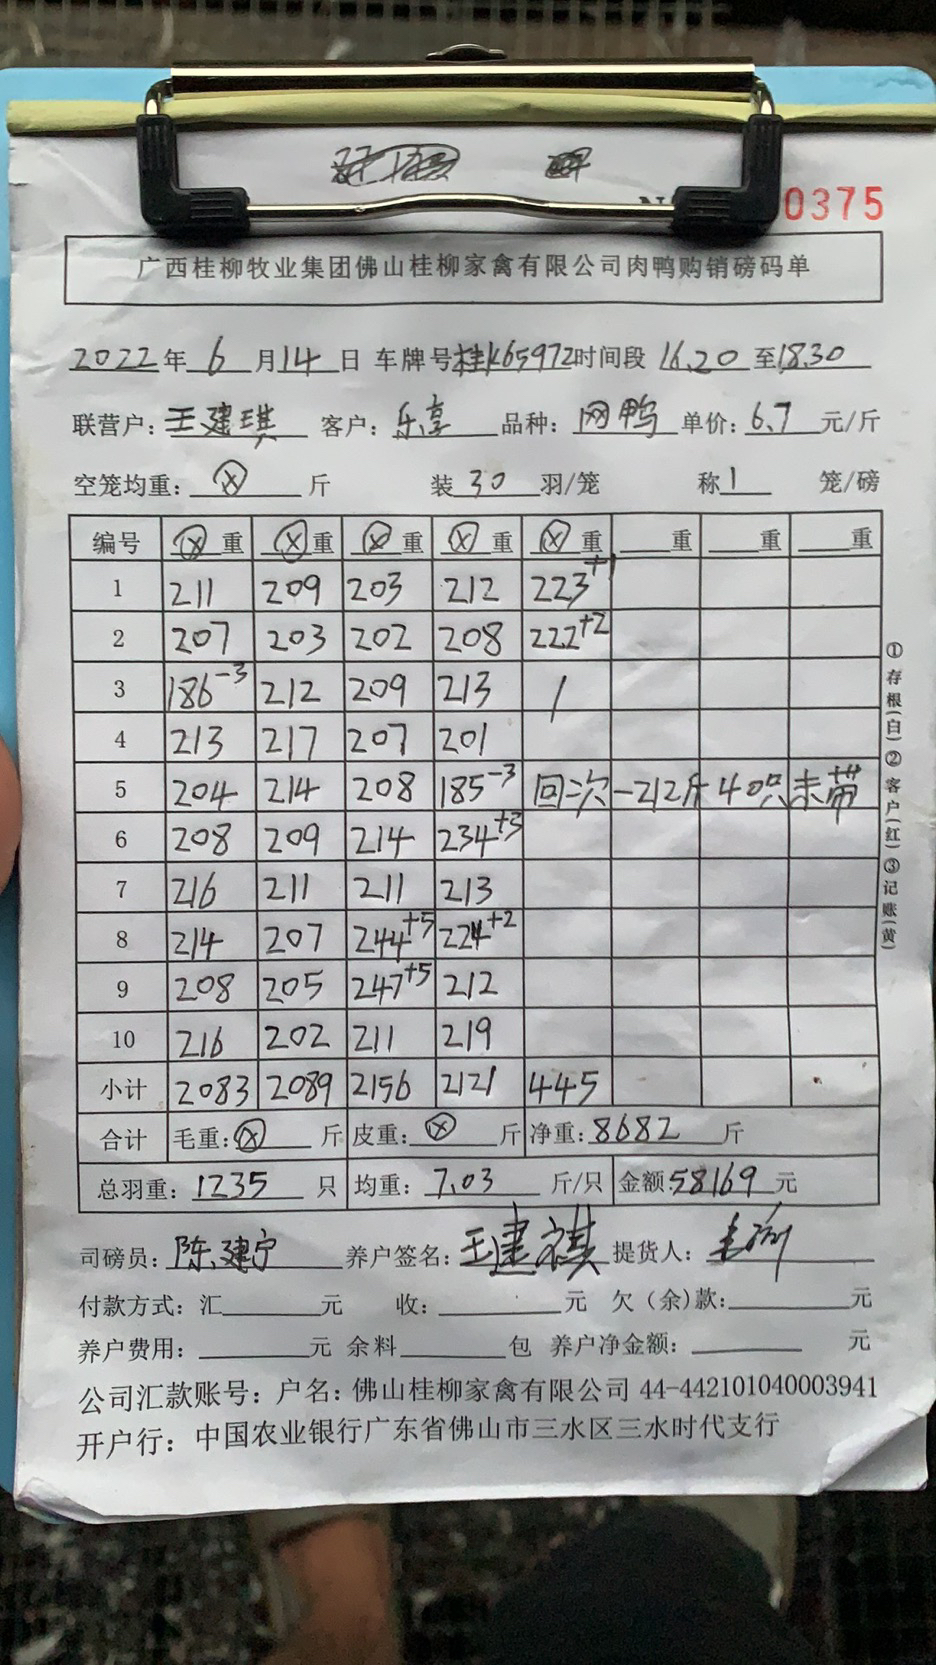 0375
广西桂柳牧业集团佛山桂柳家禽有限公司肉鸭购销磅码单
2022年 6 月 14 日 车牌号桂K65972时间段 16.20 至18.30
联营户: 王建琪 客户: 乐享 品种: 网鸭 单价: 6.7 元/斤
空笼均重: ⓧ 斤 装 30 羽/笼 称 1 笼/磅
编号 ⓧ重 ⓧ重 ⓧ重 ⓧ重 ⓧ重 重 重 重
1 211 209 203 212 223+1
2 207 203 202 208 222+2
3 186-3 212 209 213 /
4 213 217 207 201
5 204 214 208 185-3 回次-212斤 40只 未带
6 208 209 214 234+3
7 216 211 211 213
8 214 207 244+5 224+2
9 208 205 247+5 212
10 216 202 211 219
小计 2083 2089 2156 2121 445
合计 毛重: ⓧ 斤 皮重: ⓧ 斤 净重: 8682 斤
总羽重: 1235 只 均重: 7.03 斤/只 金额:58169 元
司磅员: 陈建宁 养户签名: 王建祺 提货人:
付款方式: 汇 元 收: 元 欠(余)款: 元
养户费用: 元 余料 包 养户净金额: 元
公司汇款账号: 户名: 佛山桂柳家禽有限公司 44-442101040003941
开户行: 中国农业银行广东省佛山市三水区三水时代支行
①存根(白)②客户(红)③记账(黄)